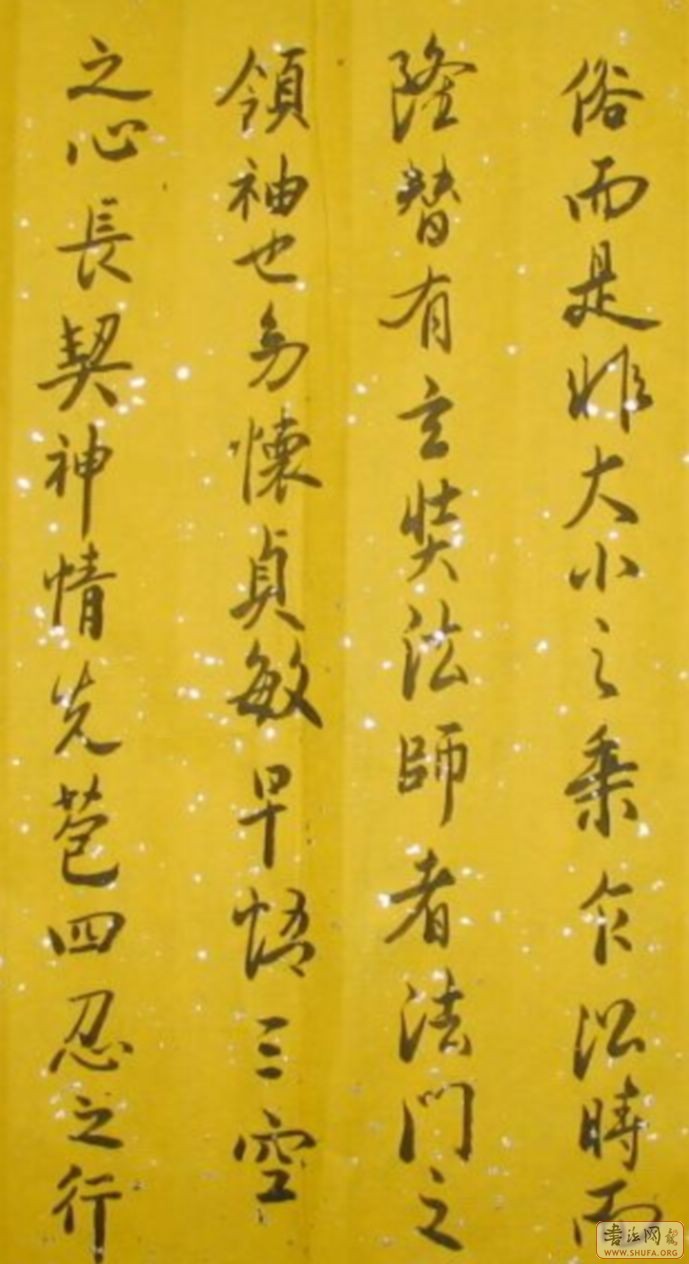 俗而是非大小之乘乍沿時而
隆替有玄奘法師者法門之
領袖也幼懷貞敏早悟三空
之心長契神情先苞四忍之行
書法网
WWW.SHUFA.ORG